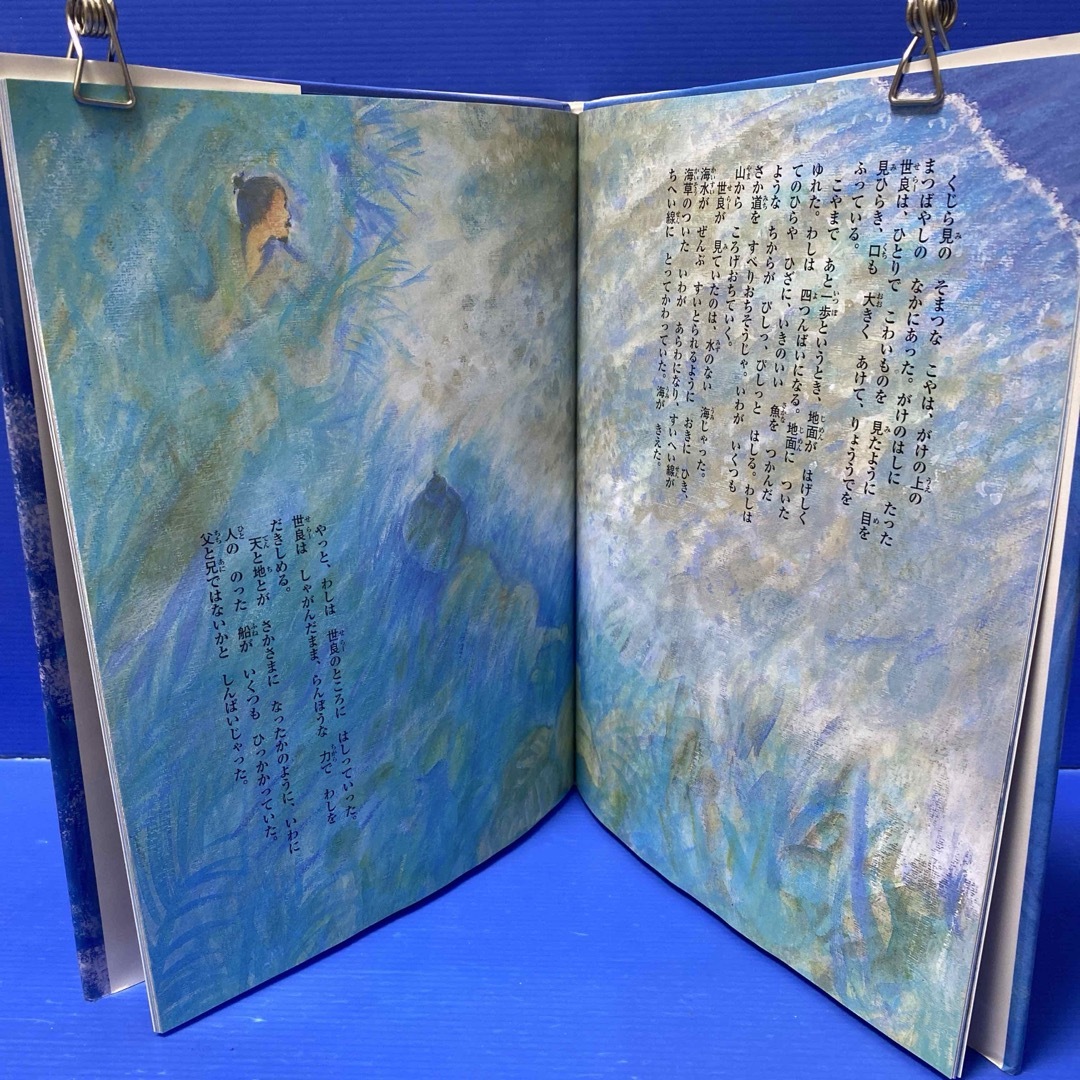 くじら見の そまつな こやは、がけの上の
まつばやしの なかにあった。がけのはしに たった
世良は、ひとりで こわいものを 見たように 目を
見ひらき、口も 大きく あけて、りょううでを
ふっている。
こやまで あと一歩というとき、地面が はげしく
ゆれた。わしは 四つんばいになる。地面に ついた
てのひらや ひざに、いきのいい 魚を つかんだ
ような ちからが ひしっ、びしっと はしる。わしは
さか道を すべりおちそうじゃ。いわが いくつも
山から ころげおちていく。
世良が 見ていたのは、水のない 海じゃった。
海水が ぜんぶ すいとられるように おきに ひき、
海草のついた いわが あらわになり、すいへい線が
ちへい線に とってかわっていた。海が きえた。
やっと、わしは 世良のところに はしっていった。
世良は しゃがんだまま、らんぼうな 力で わしを
だきしめる。
天と地とが さかさまに なったかのように、いわに
人の のった 船が いくつも ひっかかっていた。
父と兄ではないかと しんぱいじゃった。